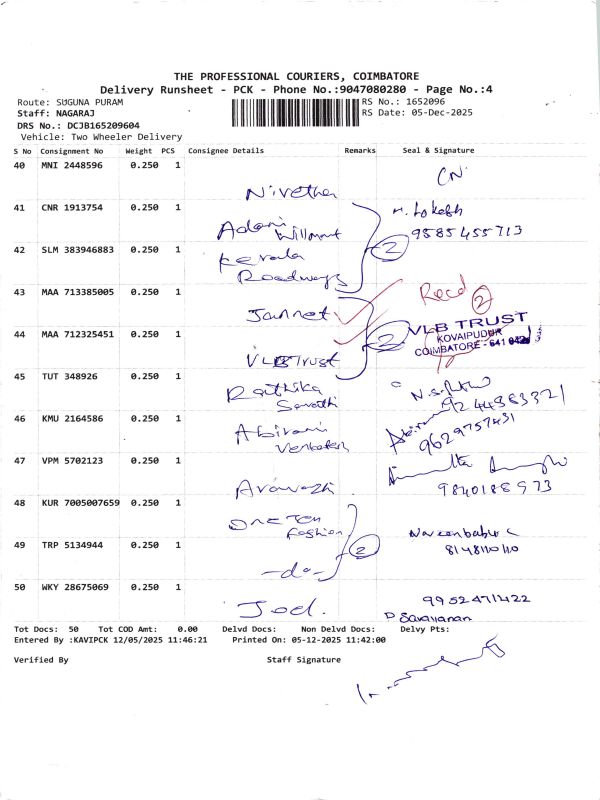 THE PROFESSIONAL COURIERS, COIMBATORE
Delivery Runsheet - PCK - Phone No.:9047080280 - Page No.:4
Route: SUGUNA PURAM
RS No.: 1652096
Staff: NAGARAJ
RS Date: 05-Dec-2025
DRS No.: DCJB165209604
Vehicle: Two Wheeler Delivery
S No Consignment No Weight PCS Consignee Details Remarks Seal & Signature
40 MNI 2448596 0.250 1
CN
Nivetha
41 CNR 1913754 0.250 1
M. Lokesh
Adani Willmart
9585455713
42 SLM 383946883 0.250 1
2
Kerala
Roadways
43 MAA 713385005 0.250 1
Recd 2
Jannet
VLB TRUST
KOVAIPUDUR
COIMBATORE - 641 042
44 MAA 712325451 0.250 1
2
VLB Trust
45 TUT 348926 0.250 1
Rathika
9244383321
46 KMU 2164586 0.250 1
Abirami
Venkatesh
9629757431
47 VPM 5702123 0.250 1
9840188973
48 KUR 7005007659 0.250 1
One Ten
Fashion
Naveenbabu C
8148110110
49 TRP 5134944 0.250 1
2
-do-
50 WKY 28675069 0.250 1
9952471422
Joel.
D Saravanan
Tot Docs: 50 Tot COD Amt: 0.00 Delvd Docs: Non Delvd Docs: Delvy Pts:
Entered By :KAVIPCK 12/05/2025 11:46:21 Printed On: 05-12-2025 11:42:00
Verified By Staff Signature